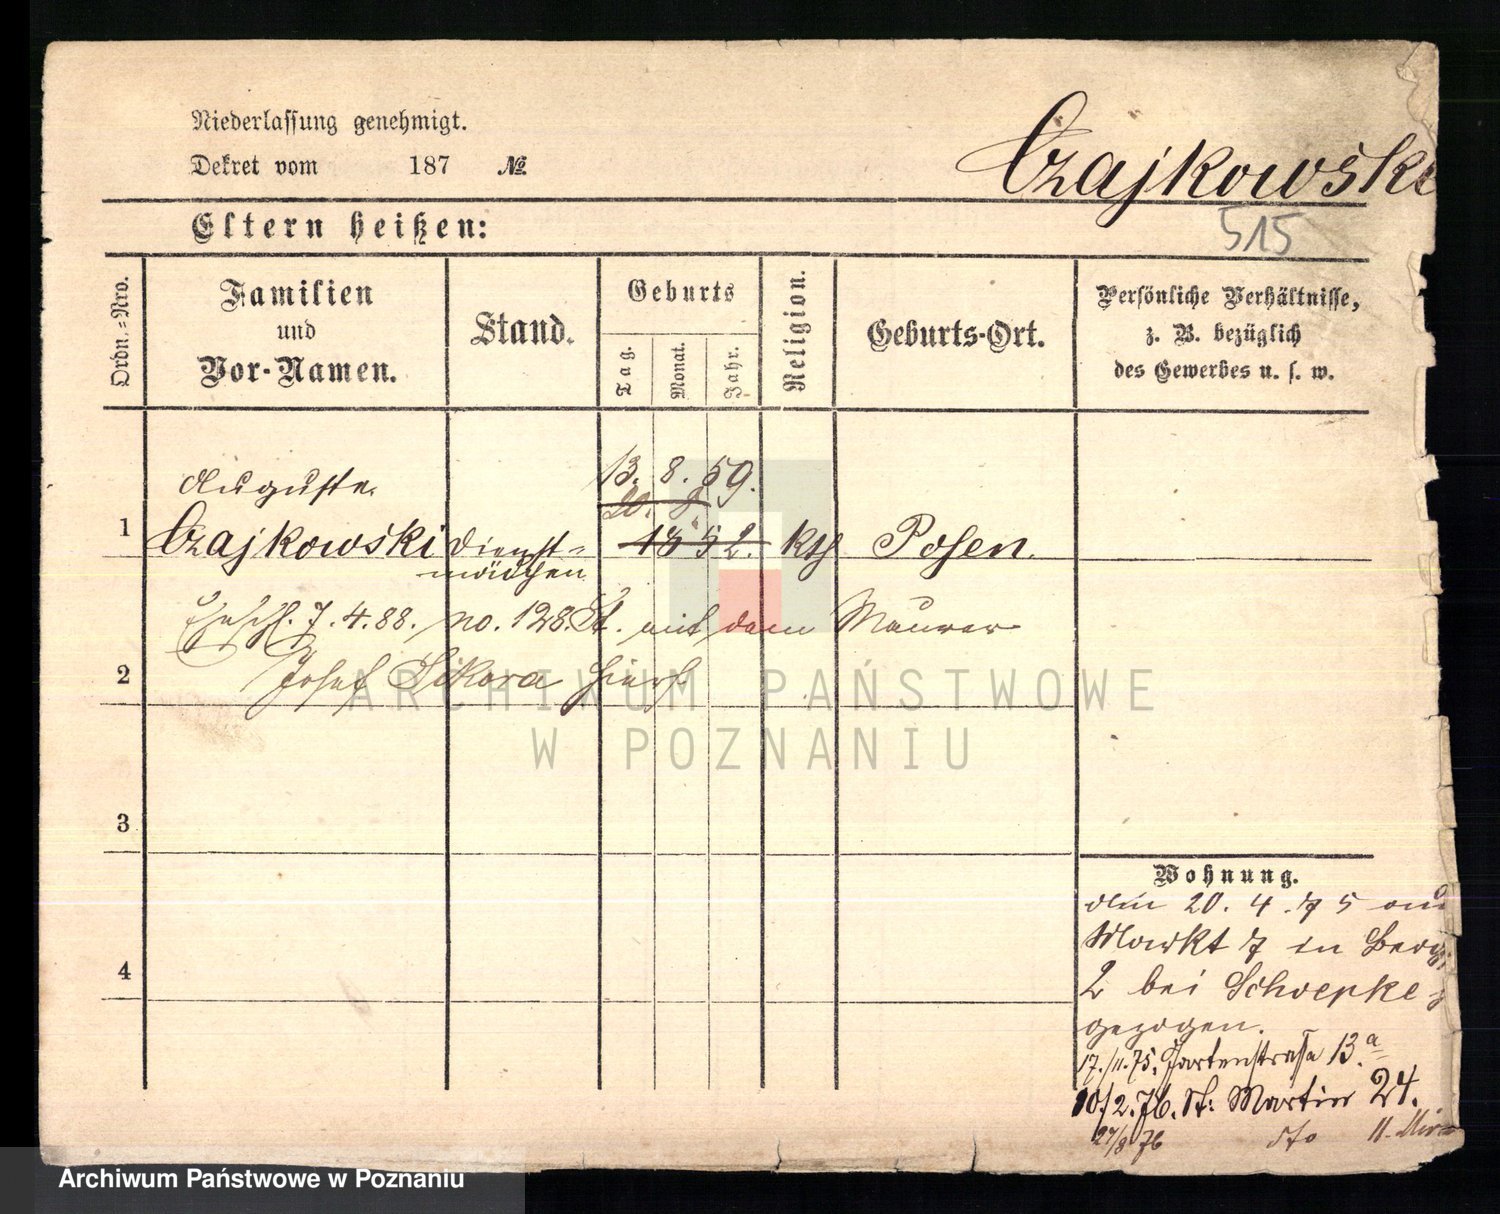 Niederlassung genehmigt.
Dekret vom 187 №
Czajkowski
Eltern heißen:
515
Ordn.=Nro.
Familien
und
Vor-Namen.
Stand.
Geburts
Tag.
Monat.
Jahr.
Religion.
Geburts-Ort.
Persönliche Verhältnisse,
z. B. bezüglich
des Gewerbes u. s. w.
Auguste
13. 8. 59.
20. 8
1 Czajkowski Dienst= 1852. kth Posen.
mädchen
Ehesch. 7.4.88. no. 128. St. mit dem Maurer
2 Josef Sikora hier
3
4
Wohnung.
den 20. 4. 75 aus
Markt 7 in Berg
2 bei Schoepke
gezogen.
17./11.75. Gartenstrasse 13.a
10/2.76. St. Martin 24.
27/8 76 dto 11.
ARCHIWUM PAŃSTWOWE
W POZNANIU
Archiwum Państwowe w Poznaniu